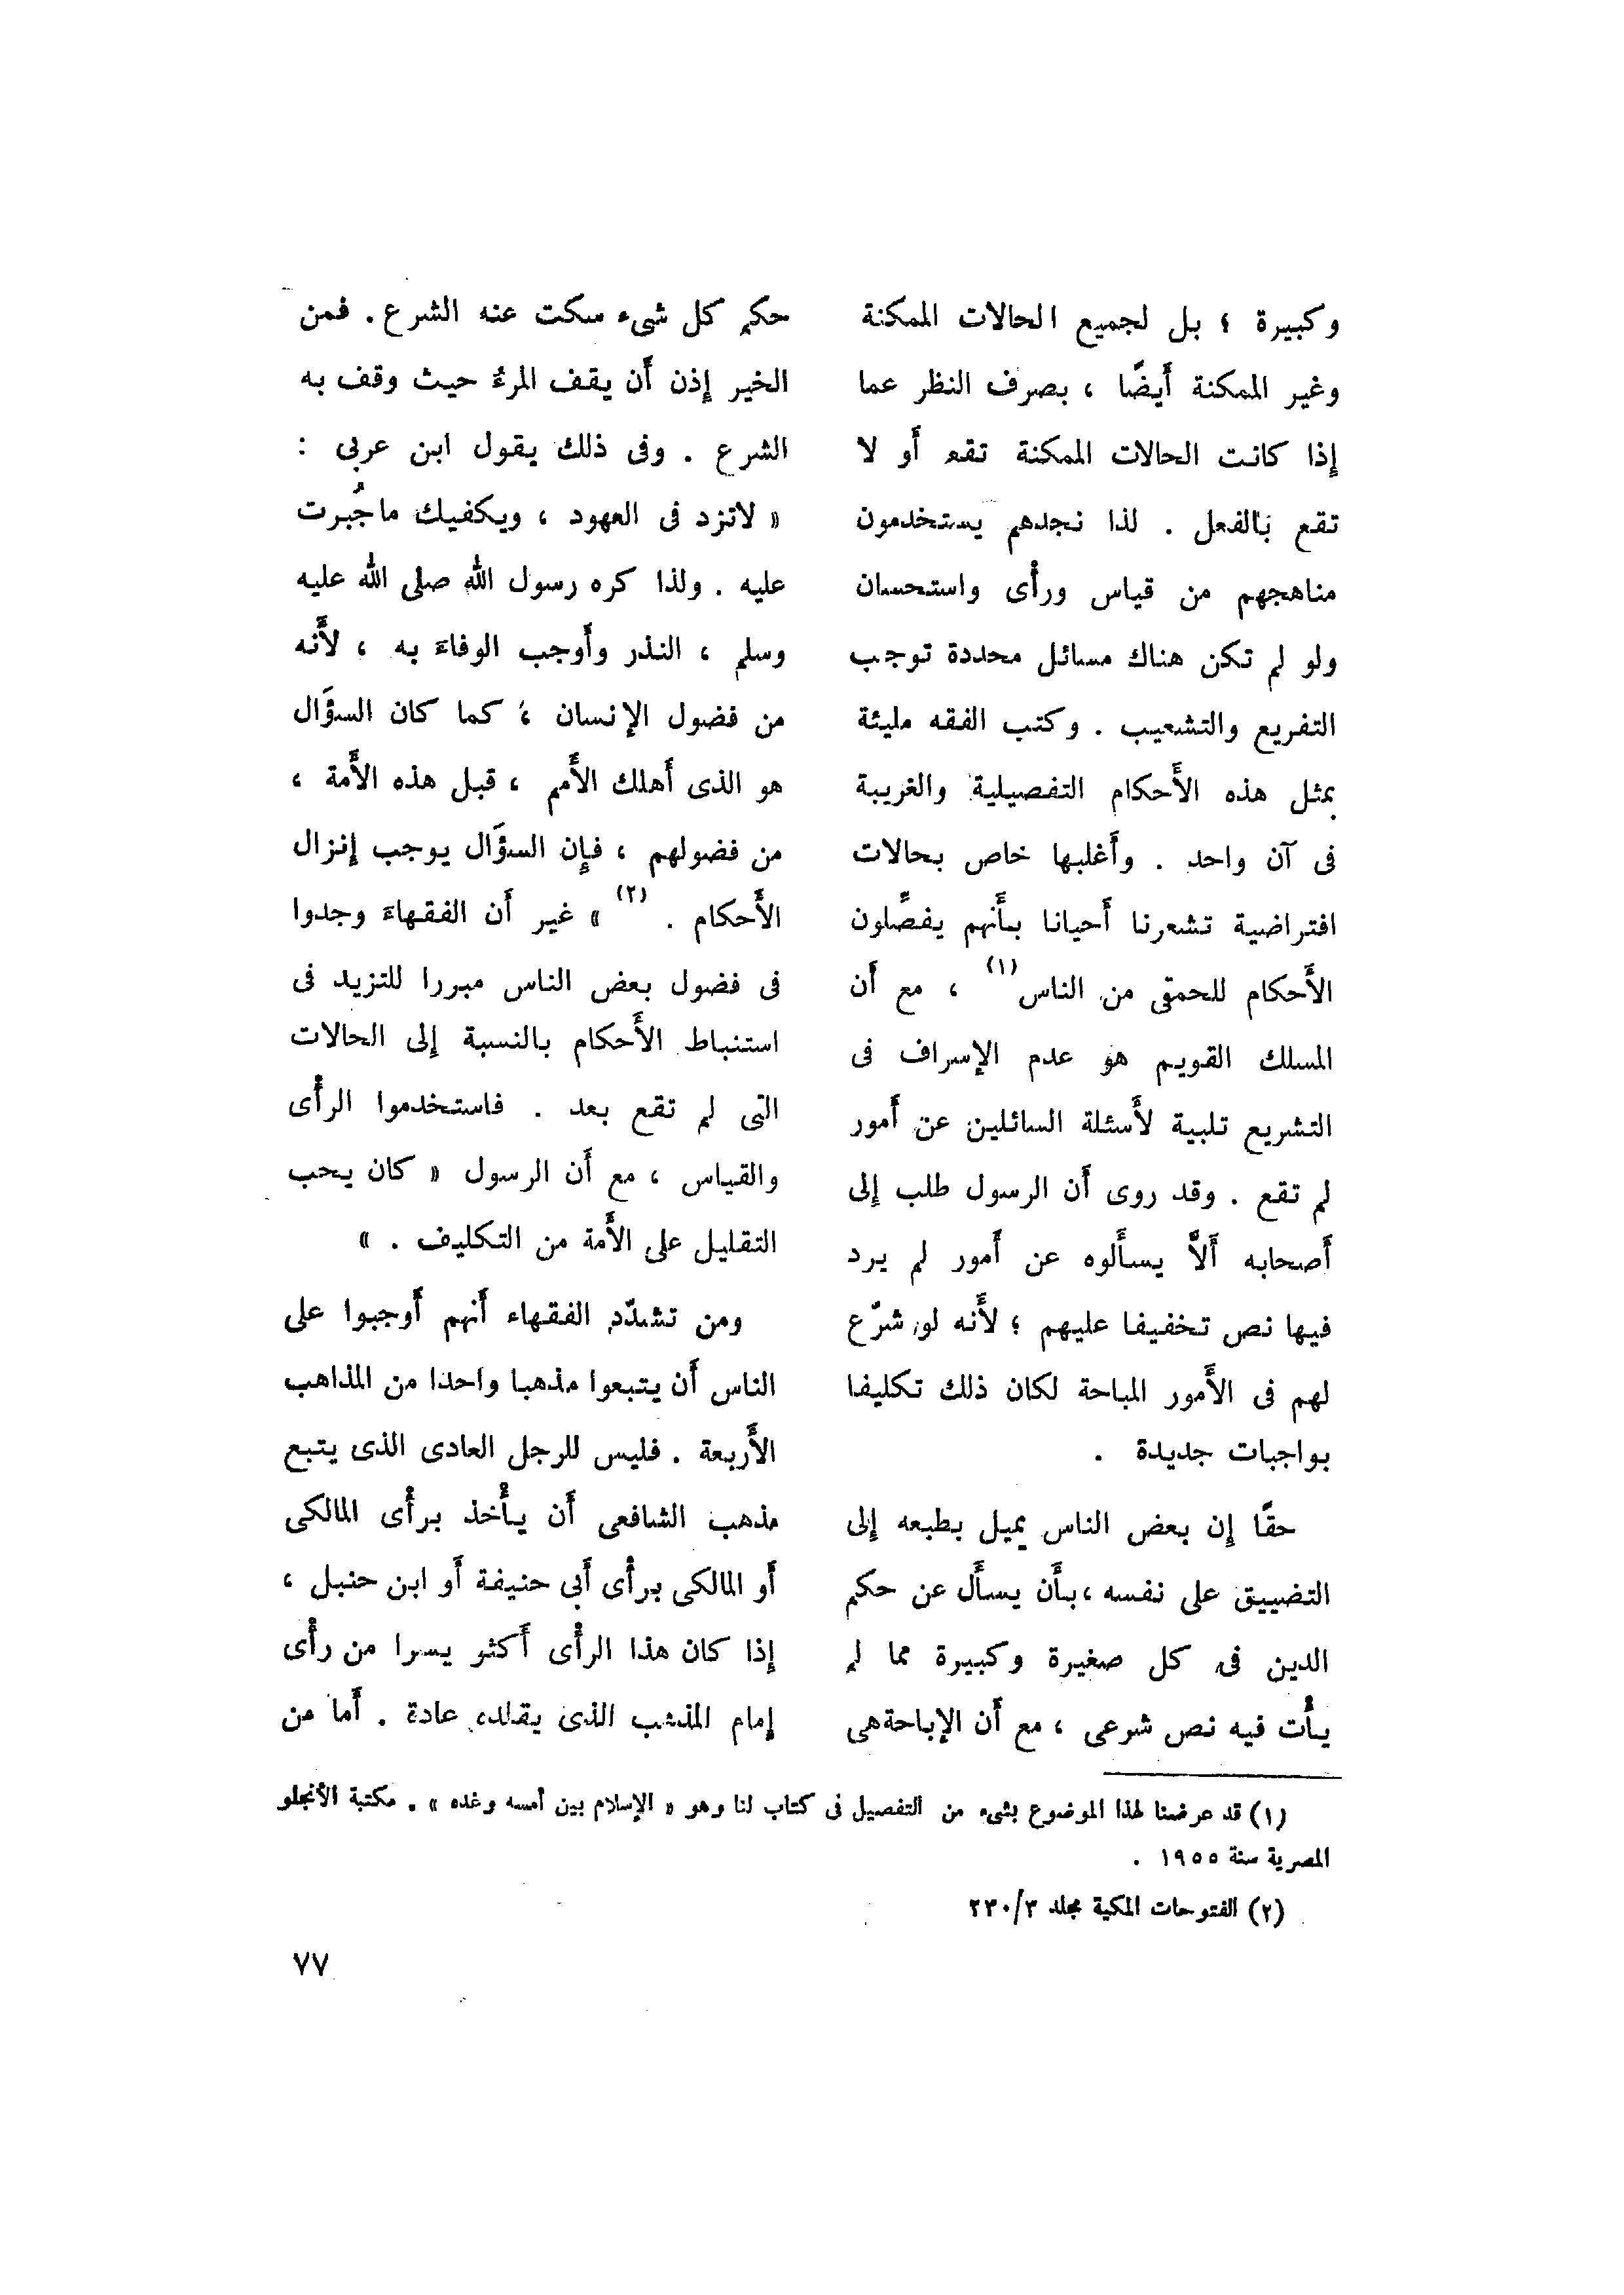 وكبيرة ؛ بل لجميع الحالات الممكنة
وغير الممكنة أيضًا ، بصرف النظر عما
إذا كانت الحالات الممكنة تقع أو لا
تقع بالفعل . لذا نجدهم يستخدمون
مناهجهم من قياس ورأى واستحسان
ولو لم تكن هناك مسائل محددة توجب
التفريع والتشعيب . وكتب الفقه مليئة
بمثل هذه الأحكام التفصيلية والغريبة
فى آن واحد . وأغلبها خاص بحالات
افتراضية تشعرنا أحيانا بأنهم يفصِّلون
الأحكام للحمقى من الناس (١) ، مع أن
المسلك القويم هو عدم الإسراف فى
التشريع تلبية لأسئلة السائلين عن أمور
لم تقع . وقد روى أن الرسول طلب إلى
أصحابه ألاَّ يسألوه عن أمور لم يرد
فيها نص تخفيفا عليهم ؛ لأنه لو شرّع
لهم فى الأمور المباحة لكان ذلك تكليفا
بواجبات جديدة .
حقًا إن بعض الناس يميل بطبعه إلى
التضييق على نفسه ، بأن يسأل عن حكم
الدين فى كل صغيرة وكبيرة مما لم
يأت فيه نص شرعى ، مع أن الإباحة هى
حكم كل شىء سكت عنه الشرع . فمن
الخير إذن أن يقف المرءُ حيث وقف به
الشرع . وفى ذلك يقول ابن عربى :
« لاتزد فى العهود ، ويكفيك ماجُبرت
عليه . ولذا كره رسول الله صلى الله عليه
وسلم ، النذر وأوجب الوفاءَ به ، لأَنه
من فضول الإنسان ؛ كما كان السؤَال
هو الذى أهلك الأُمم ، قبل هذه الأُمة ،
من فضولهم ، فإن السؤَال يوجب إنزال
الأَحكام . (٢) » غير أن الفقهاءَ وجدوا
فى فضول بعض الناس مبررا للتزيد فى
استنباط الأَحكام بالنسبة إلى الحالات
التى لم تقع بعد . فاستخدموا الرأى
والقياس ، مع أن الرسول « كان يحب
التقليل على الأُمة من التكليف . »
ومن تشدّد الفقهاء أنهم أوجبوا على
الناس أن يتبعوا مذهبا واحدا من المذاهب
الأَربعة . فليس للرجل العادى الذى يتبع
مذهب الشافعى أن يأخذ برأى المالكى
أو المالكى برأى أبى حنيفة أو ابن حنبل ،
إذا كان هذا الرأى أكثر يسرا من رأى
إمام المذهب الذى يقلده عادة . أما من
(١) قد عرضنا لهذا الموضوع بشىء من التفصيل فى كتاب لنا وهو « الإسلام بين أمسه وغده » . مكتبة الأنجلو
المصرية سنة ١٩٥٥ .
(٢) الفتوحات المكية مجلد ٢٣٠/٣
٧٧